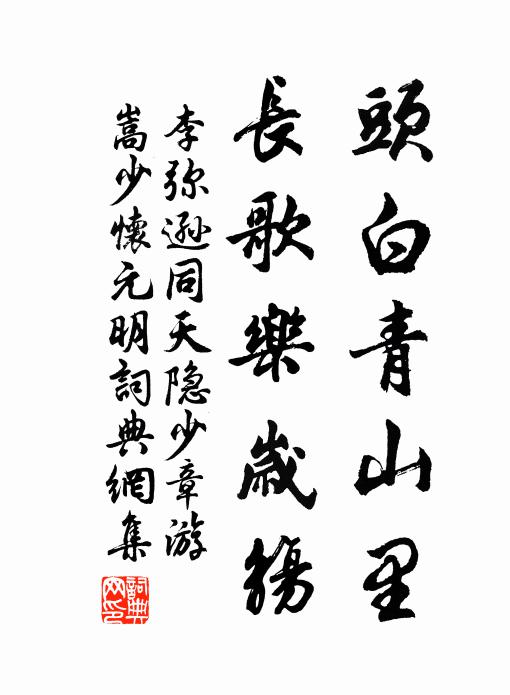 頭白青山里
長歌樂歲觴
李弥遜同天隐少章游
嵩少懷元明詞典網集
詞典
网印